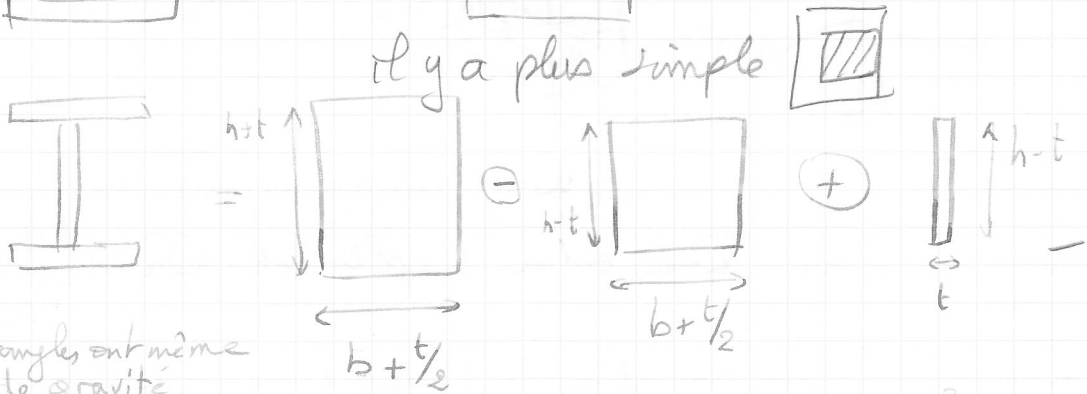 il y a plus simple
h+t
=
-
h-t
+
h-t
b+t/2
b+t/2
t
angles ont même
de gravité